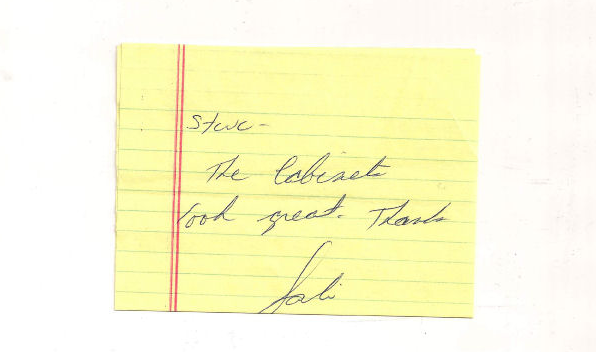 Steve-
The Cabinets
look great. Thanks